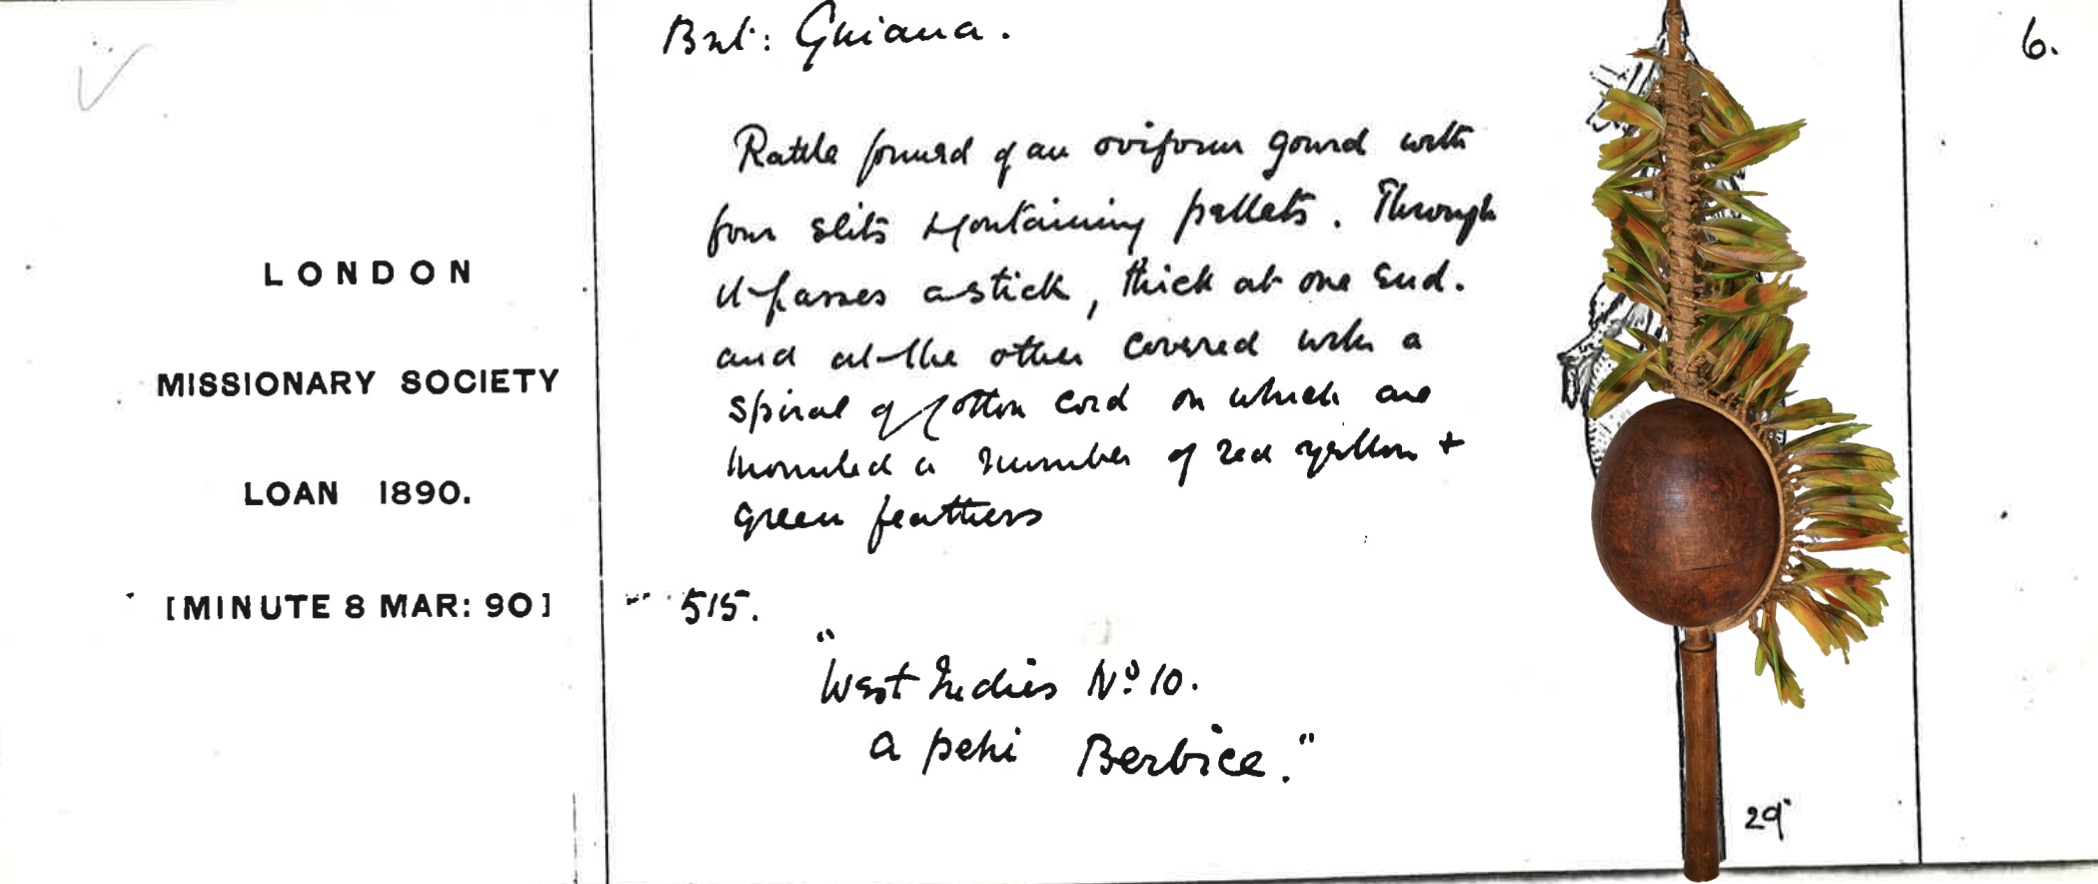 LONDON
MISSIONARY SOCIETY
LOAN 1890.
[MINUTE 8 MAR: 90]
Brit: Guiana.
Rattle formed of an oviform gourd with
four slits & containing pellets. Through
it passes a stick, thick at one end.
and at the other covered with a
spiral of cotton cord on which are
mounted a number of red yellow +
green feathers
515.
"West Indies No. 10.
a peki Berbice."
29"
6.